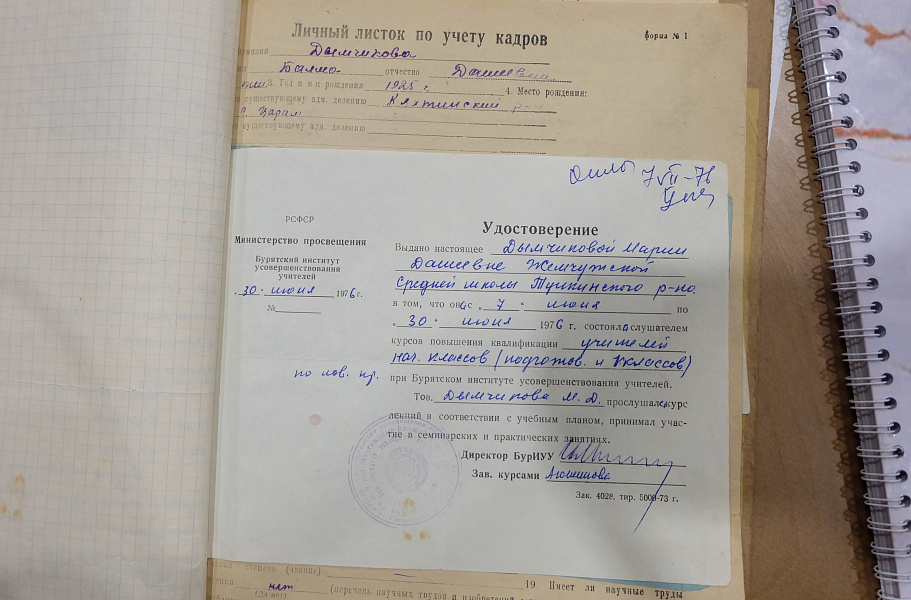 Личный листок по учету кадров
форма № 1
Дымчикова
Балма отчество Дашиевна
3. Год и м-ц рождения 1925 г. 4. Место рождения:
существующему адм. делению Кяхтинский р-н
с. Харам
существующему адм. делению
7 VII-76
РСФСР
Министерство просвещения
Бурятский институт
усовершенствования
учителей
„30" июня 1976 г.
№
Удостоверение
Выдано настоящее Дымчиковой Марии
Дашиевне Жемчугской
средней школы Тункинского р-на.
в том, что она с „7" июня по
„30" июня 1976 г. состояла слушателем
курсов повышения квалификации учителей
нач. классов (подготов. и I классов)
при Бурятском институте усовершенствования учителей.
Тов. Дымчикова М. Д. прослушала курс
лекций в соответствии с учебным планом, принимал учас-
тие в семинарских и практических занятиях.
Директор БурИУУ
Зав. курсами Аюшинова
Зак. 4028. тир. 5000-73 г.
степень (звание)
нет
(Да-нет)
(перечень научных трудов и изобретений
19 Имеет ли научные труды